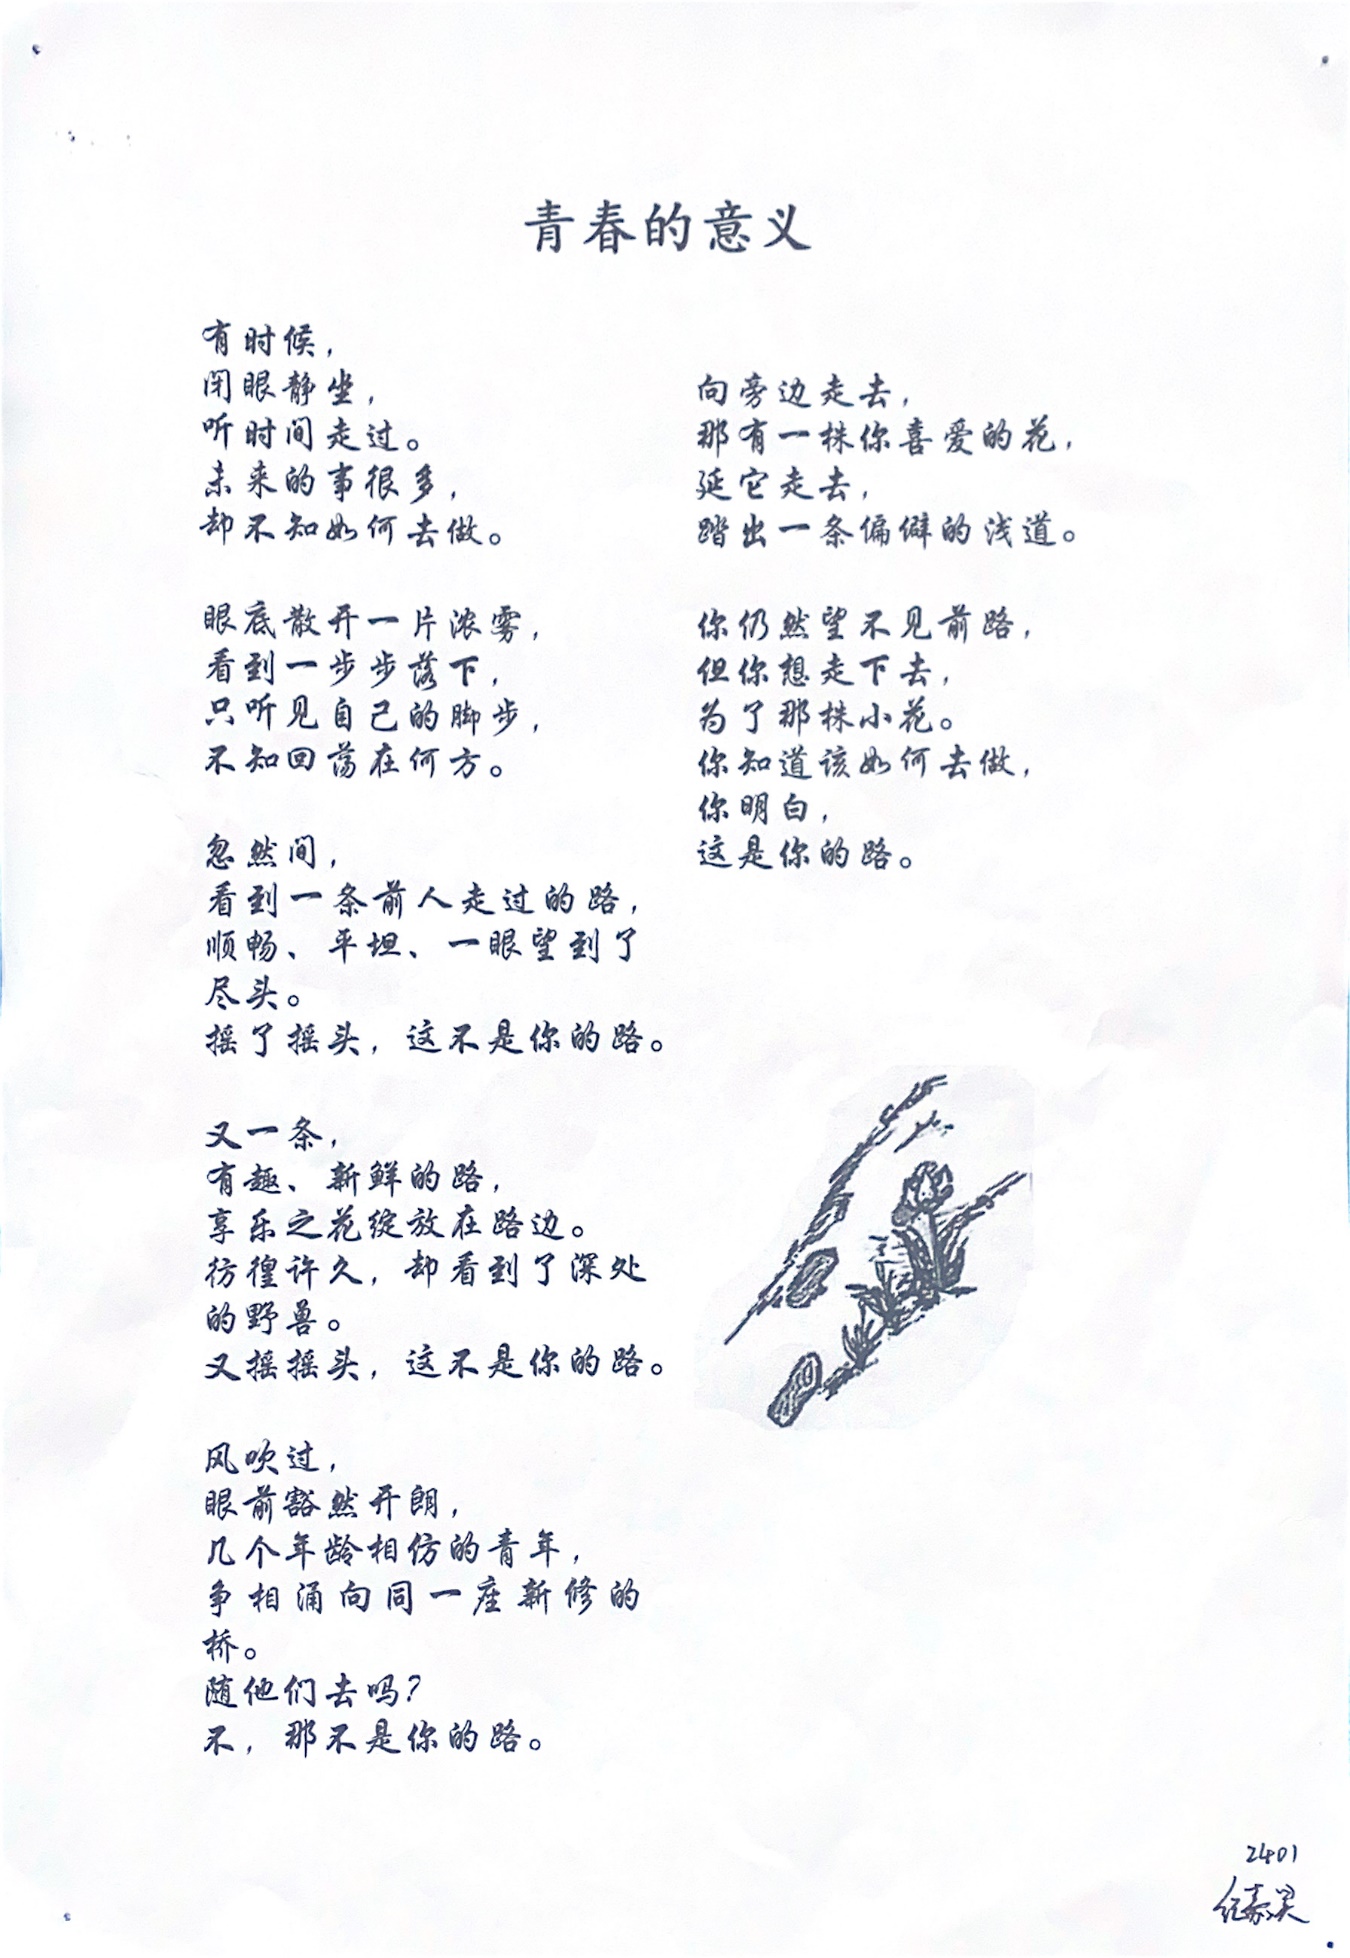 青春的意义
有时候，
闭眼静坐，
听时间走过。
未来的事很多，
却不知如何去做。
眼底散开一片浓雾，
看到一步步落下，
只听见自己的脚步，
不知回荡在何方。
忽然间，
看到一条前人走过的路，
顺畅、平坦、一眼望到了
尽头。
摇了摇头，这不是你的路。
又一条，
有趣、新鲜的路，
享乐之花绽放在路边。
彷徨许久，却看到了深处
的野兽。
又摇摇头，这不是你的路。
风吹过，
眼前豁然开朗，
几个年龄相仿的青年，
争相涌向同一座新修的
桥。
随他们去吗？
不，那不是你的路。
向旁边走去，
那有一株你喜爱的花，
延它走去，
踏出一条偏僻的浅道。
你仍然望不见前路，
但你想走下去，
为了那株小花。
你知道该如何去做，
你明白，
这是你的路。
2401